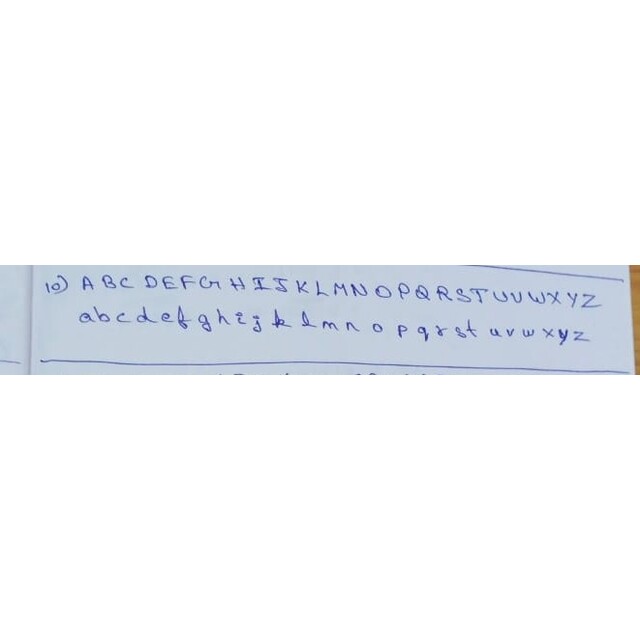 10) A B C D E F G H I J K L M N O P Q R S T U V W X Y Z
a b c d e f g h i j k l m n o p q r s t u v w x y z